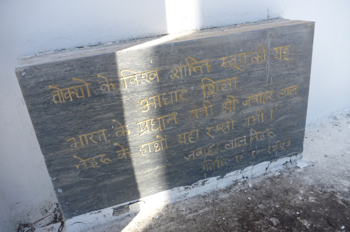 तोक्यो के विश्व शान्ति स्तूप की यह
आधार शिला
भारत के प्रधान मंत्री श्री जवाहर लाल
नेहरू के हाथों यहाँ रखी गयी।
जवाहरलाल नेहरू